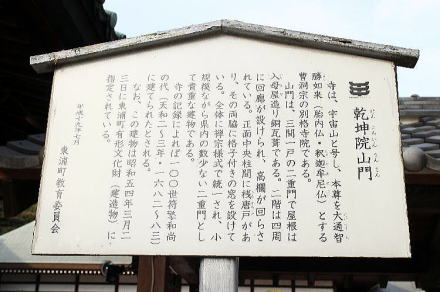 乾坤院山門
けんこんいんさんもん
寺は、宇宙山と号し、本尊を大通智
勝如来(胎内仏・釈迦牟尼仏)とする
曹洞宗の別格寺院である。
山門は、三間一戸の二重門で屋根は
入母屋造り銅瓦葺である。二階は四周
に回廊が設けられ、高欄が回らさ
れている。正面中央柱間に桟唐戸があ
り、その両脇に格子付きの窓を設けて
いる。全体に禅宗様式で統一され、小
規模ながら県内の数少ない二重門とし
て貴重な建物である。
寺の記録によれば一〇〇世符擎和尚
の代(天和二〜三年・一六八二〜八三)
に建てられたとされる。
なお、この建物は昭和五四年三月二
三日に東浦町有形文化財(建造物)に
指定されている。
平成十九年七月
東浦町教育委員会